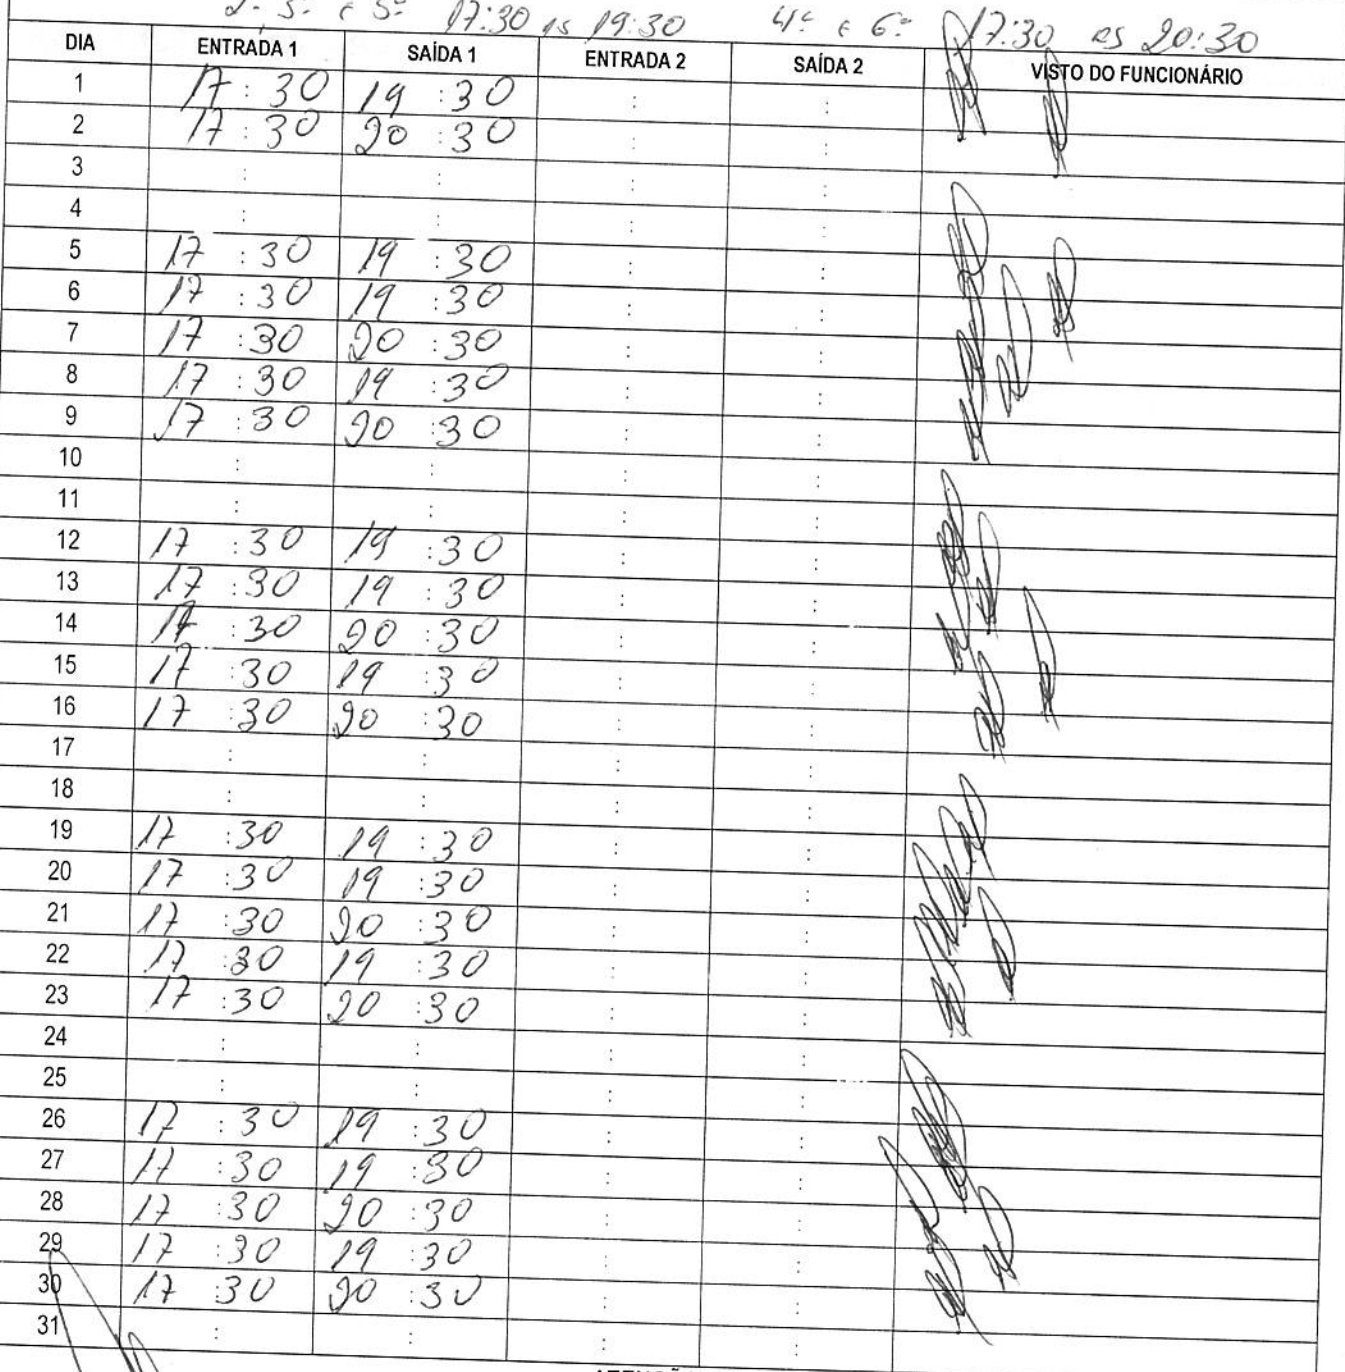 2ª 3ª e 5ª 17:30 as 19:30 4ª e 6ª 17:30 as 20:30
DIA ENTRADA 1 SAÍDA 1 ENTRADA 2 SAÍDA 2 VISTO DO FUNCIONÁRIO
1 17:30 19:30 : :
2 17:30 20:30 : :
3 : : : :
4 : : : :
5 17:30 19:30 : :
6 17:30 19:30 : :
7 17:30 20:30 : :
8 17:30 19:30 : :
9 17:30 20:30 : :
10 : : : :
11 : : : :
12 17:30 19:30 : :
13 17:30 19:30 : :
14 17:30 20:30 : :
15 17:30 19:30 : :
16 17:30 20:30 : :
17 : : : :
18 : : : :
19 17:30 19:30 : :
20 17:30 19:30 : :
21 17:30 20:30 : :
22 17:30 19:30 : :
23 17:30 20:30 : :
24 : : : :
25 : : : :
26 17:30 19:30 : :
27 17:30 19:30 : :
28 17:30 20:30 : :
29 17:30 19:30 : :
30 17:30 20:30 : :
31 : : : :